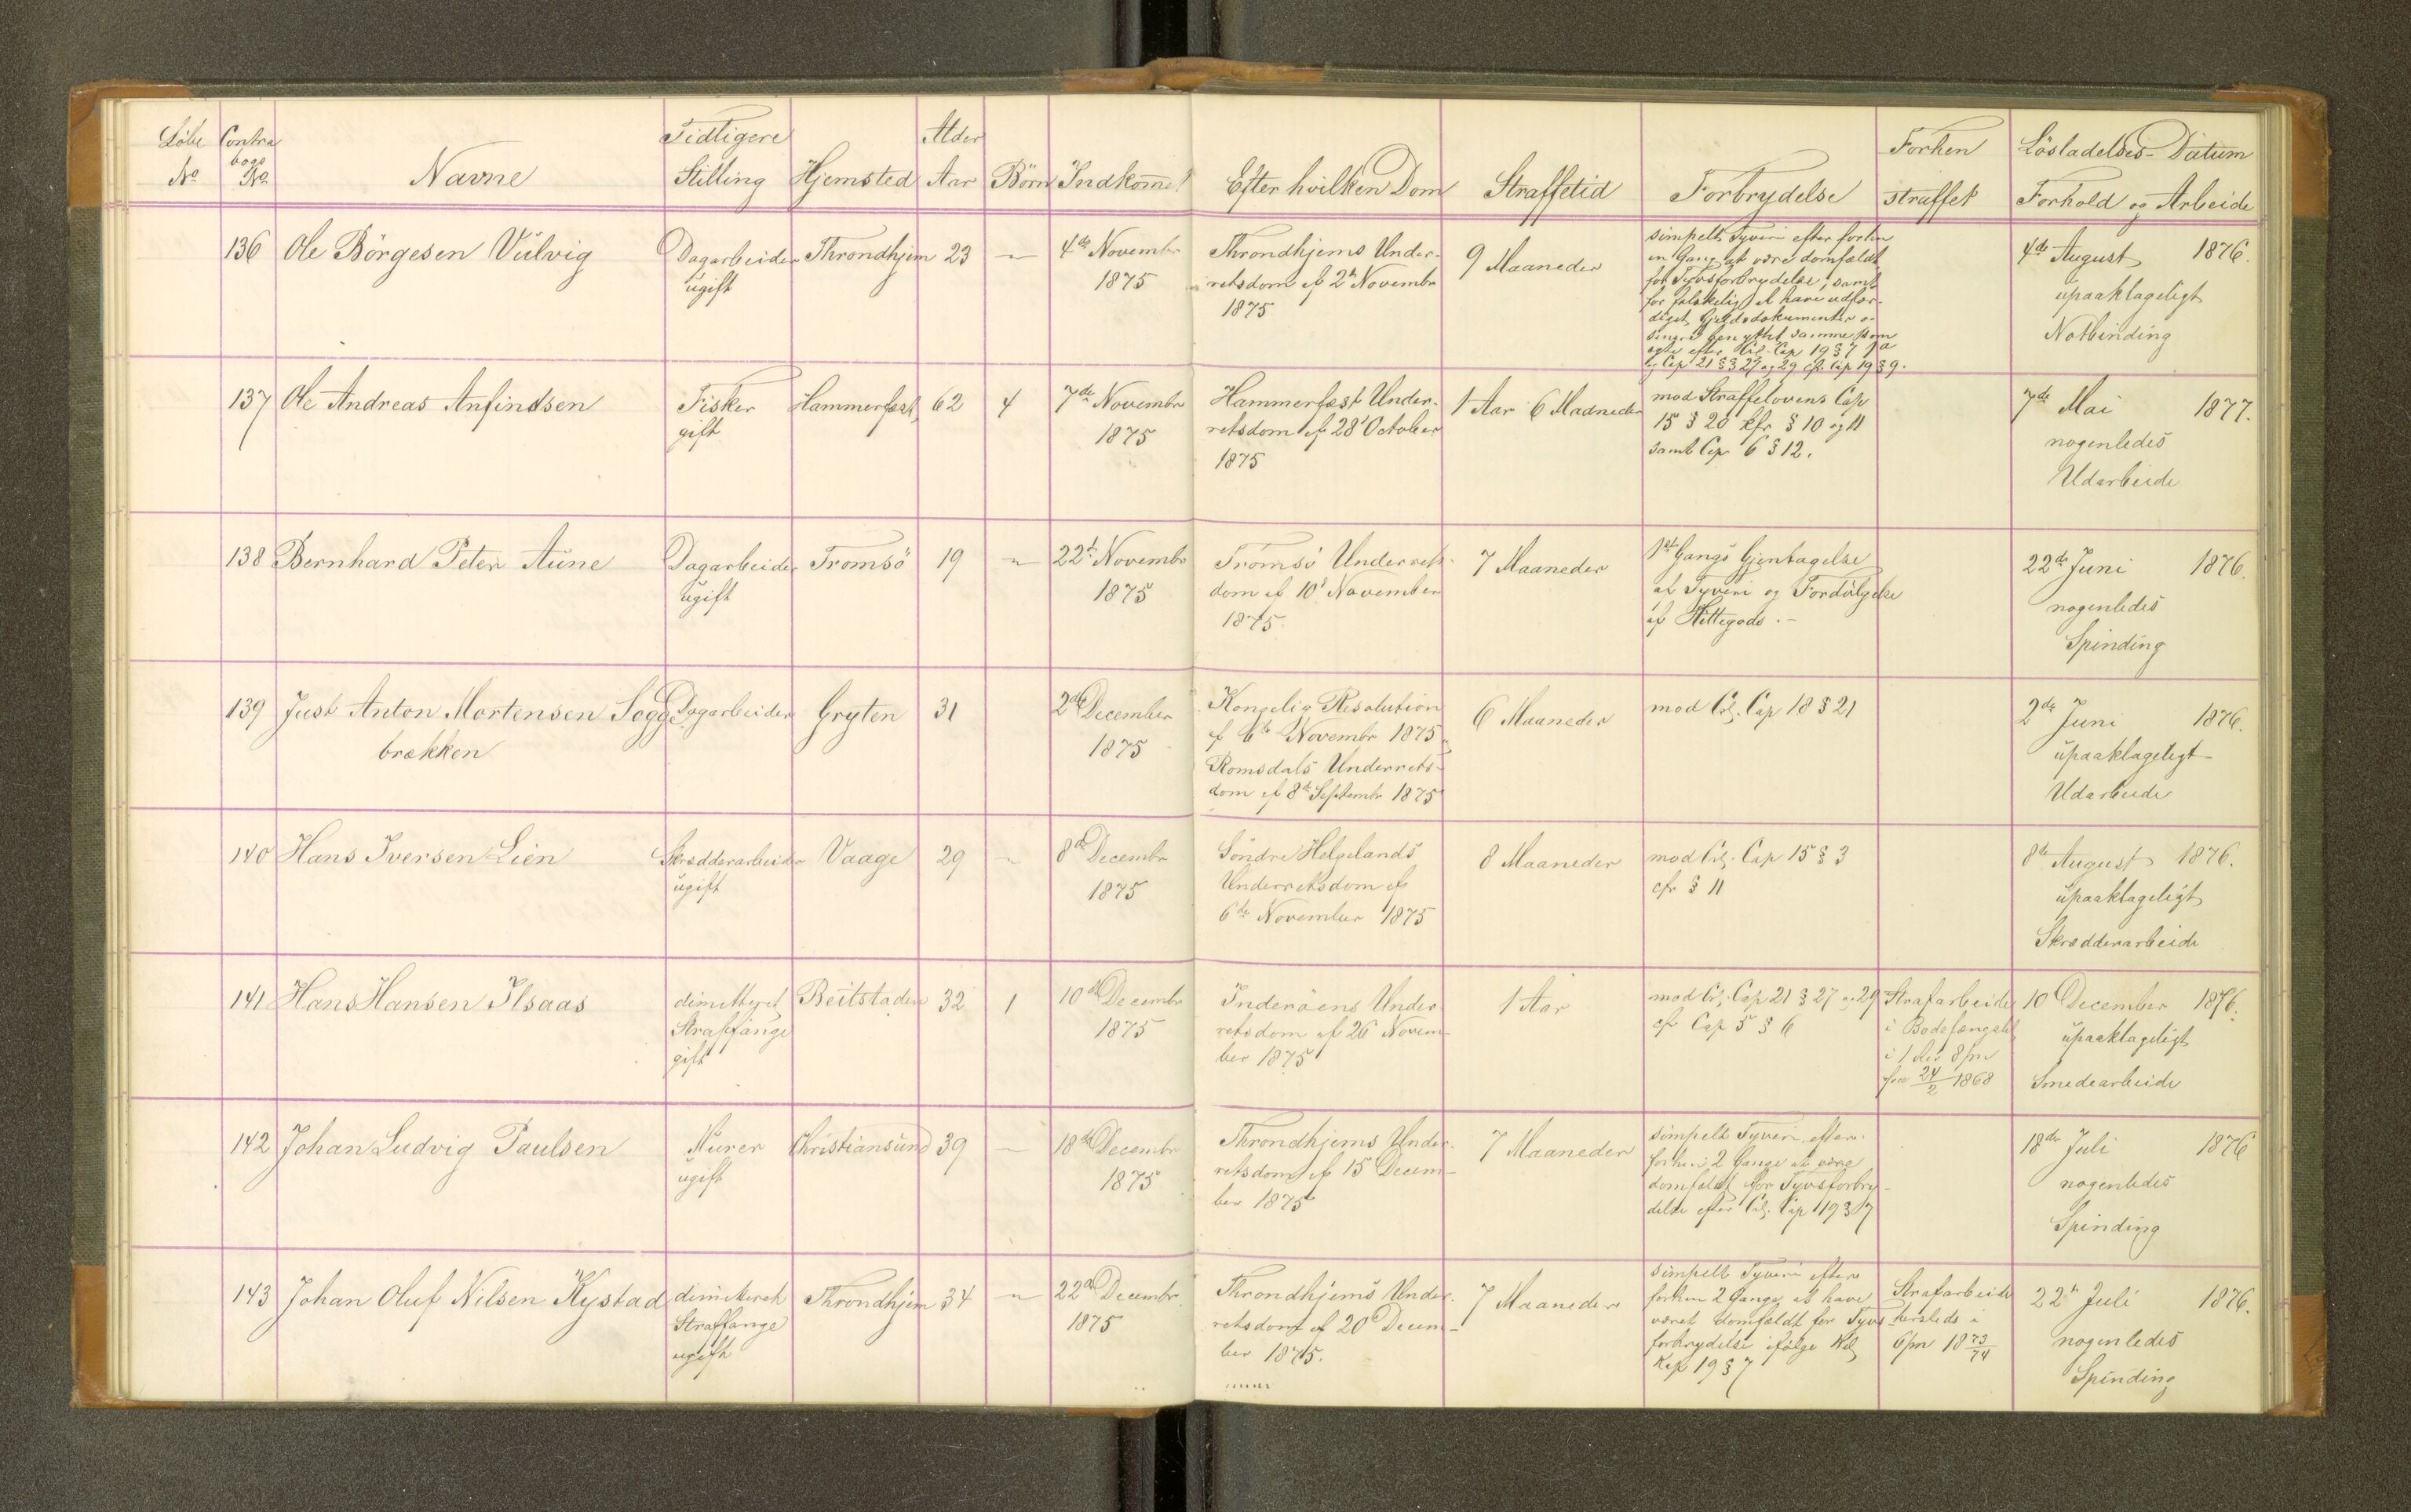 Löbe No
Contra bogs No
Navne
Tidligere Stilling
Hjemsted
Alder Aar
Börn
Indkommet
Efter hvilken Dom
Straffetid
Forbrydelse
Forhen straffet
Lösladelses-Datum
Forhold og Arbeide
136
Ole Börgesen Vülvig
Dagarbeider
ugift
Throndhjem
23
-
4de Novembr
1875
Throndhjems Under-
retsdom af 2den Novembr
1875
9 Maaneder
simpelt Tyveri efter forhen
en Gang at være domfældt
for Tyvsforbrydelse, samt
for falskelig at have udfær-
diget Gjeldsdokumenter o-
benyttet samme som
ægte efter Crl. Cap 19 § 7
og Cap 21 §§ 27 og 29 cfr. Cap 19 § 9.
4de August 1876.
upaaklageligt
Notbinding
137
Ole Andreas Anfindsen
Fisker
gift
Hammerfest
62
4
7de Novembr
1875
Hammerfest Under-
retsdom af 28' October
1875
1 Aar 6 Maaneder
mod Straffelovens Cap
15 § 20 kfr § 10 og 11
samt Cap 6 § 12.
7de Mai 1877.
nogenledes
Udarbeide
138
Bernhard Peter Aune
Dagarbeider
ugift
Tromsö
19
-
22de Novembr
1875
Tromsö Underrets-
dom af 10' November
1875.
7 Maaneder
1ste Gangs Gjentagelse
af Tyveri og Fordülgelse
af Hittegods.-
22de Juni 1876.
nogenledes
Spinding
139
Just Anton Mortensen Sogge
brækken
Dagarbeider
Gryten
31
2de December
1875
Kongelig Resolution
af 6te Novembr 1875
Romsdals Underrets-
dom af 8de Septembr 1875
6 Maaneder
mod Crl. Cap 18 § 21
2de Juni 1876.
upaaklageligt
Udarbeide
140
Hans Iversen Lien
Skrædderarbeider
ugift
Vaage
29
-
8de Decembr
1875
Söndre Helgelands
Underretsdom af
6te November 1875
8 Maaneder
mod Crl. Cap 15 § 3
cfr § 11
8de August 1876.
upaaklageligt
Skrædderarbeide
141
Hans Hansen Ilsaas
dimitteret
Straffange
gift
Beitstaden
32
1
10de Decembr
1875
Inderöens Under-
retsdom af 26 Novem-
ber 1875
1 Aar
mod Crl. Cap 21 § 27 og 29
cfr Cap 5 § 6
Strafarbeide
i Bodsfængslet
i 1 Aar 8 m
fra 24/2 1868
10 December 1876.
upaaklageligt
Smedearbeide
142
Johan Ludvig Paulsen
Murer
ugift
Christiansund
39
-
18de Decembr
1875
Throndhjems Under-
retsdom af 15 Decem-
ber 1875
7 Maaneder
simpelt Tyveri efter
forhen 2 Gange at være
domfældt for Tyvsforbry-
delse efter Crl. Cap 19 § 7
18de Juli 1876
nogenledes
Spinding
143
Johan Oluf Nilsen Kystad
dimitteret
Straffange
ugift
Throndhjem
34
-
22de Decembr
1875
Throndhjems Under-
retsdom af 20 Decem-
ber 1875.
7 Maaneder
simpelt Tyveri efter
forhen 2 Gange at have
været domfældt for Tyvs-
forbrydelse ifølge Krl
Kap 19 § 7
Strafarbeide
hersteds i
6 m 18 73/74
22de Juli 1876.
nogenledes
Spinding